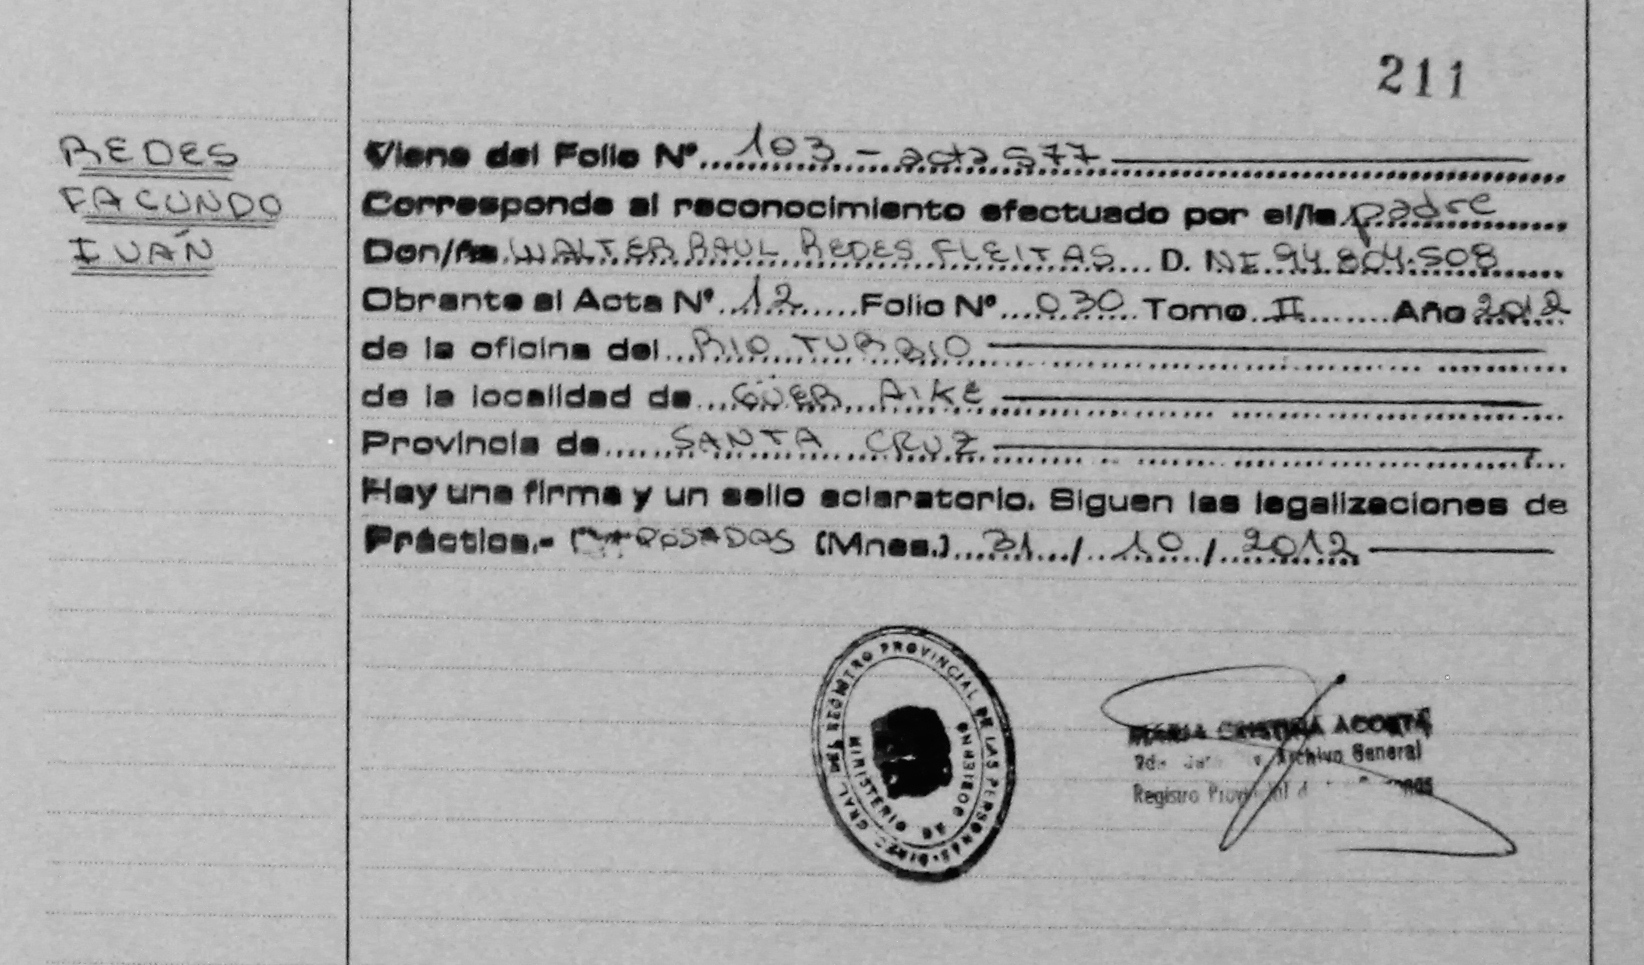 211
REDES
FACUNDO
IVÁN
Viene del Folio Nº 103 - acta 577
Corresponde al reconocimiento efectuado por el/la padre
Don/ña WALTER RAUL REDES FLEITAS D. NI. 94.804.508
Obrante al Acta Nº 12 Folio Nº 030 Tomo II Año 2012
de la oficina del RIO TURBIO
de la localidad de GÜER AIKE
Provincia de SANTA CRUZ
Hay una firma y un sello aclaratorio. Siguen las legalizaciones de
Práctica.- POSADAS (Mnes.) 31 / 10 / 2012
DIREC. GRAL. DEL REGISTRO PROVINCIAL DE LAS PERSONAS
MINISTERIO DE GOBIERNO
MARIA CRISTINA ACOSTA
Archivo General
Registro Provincial